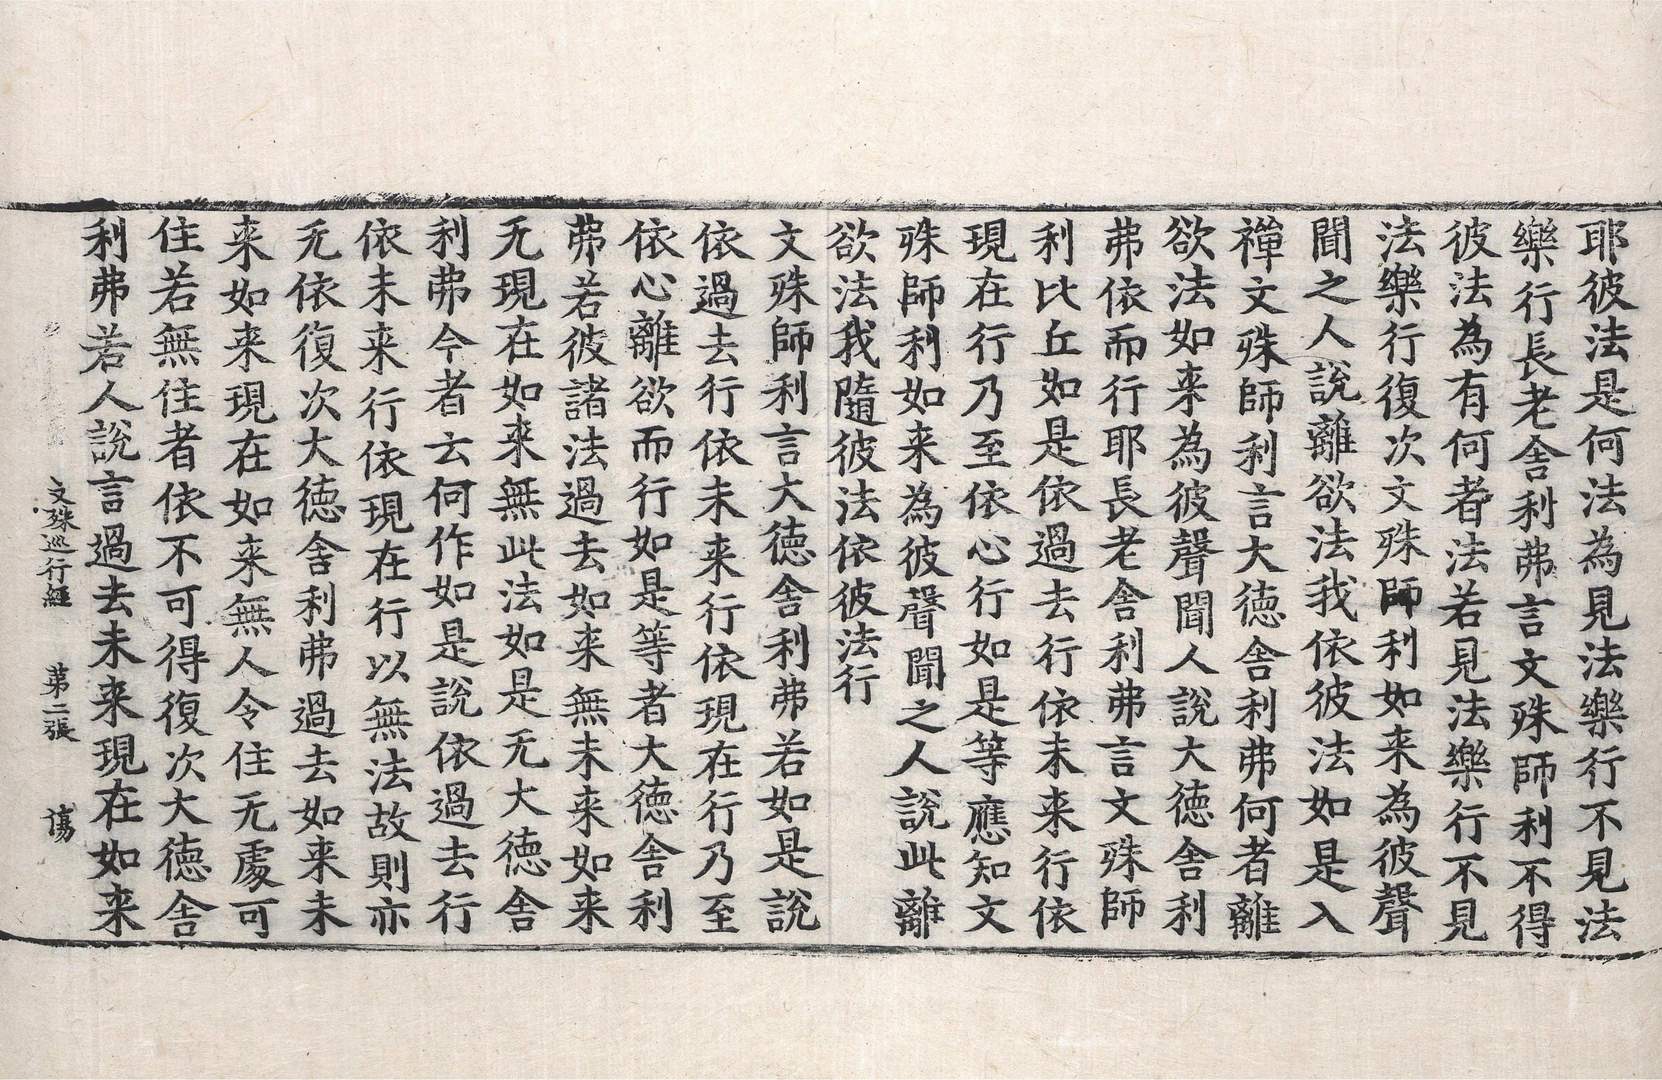 耶彼法是何法為見法樂行不見法
樂行長老舍利弗言文殊師利不得
彼法為有何者法若見法樂行不見
法樂行復次文殊師利如来為彼聲
聞之人說離欲法我依彼法如是入
禪文殊師利言大德舍利弗何者離
欲法如来為彼聲聞人說大德舍利
弗依而行耶長老舍利弗言文殊師
利比丘如是依過去行依未来行依
現在行乃至依心行如是等應知文
殊師利如来為彼聲聞之人說此離
欲法我隨彼法依彼法行
文殊師利言大德舍利弗若如是說
依過去行依未来行依現在行乃至
依心離欲而行如是等者大德舍利
弗若彼諸法過去如来無未来如来
无現在如来無此法如是无大德舍
利弗今者云何作如是說依過去行
依未来行依現在行以無法故則亦
无依復次大德舍利弗過去如来未
来如来現在如来無人令住无處可
住若無住者依不可得復次大德舍
利弗若人說言過去未来現在如来
文殊巡行經 第二張 傷